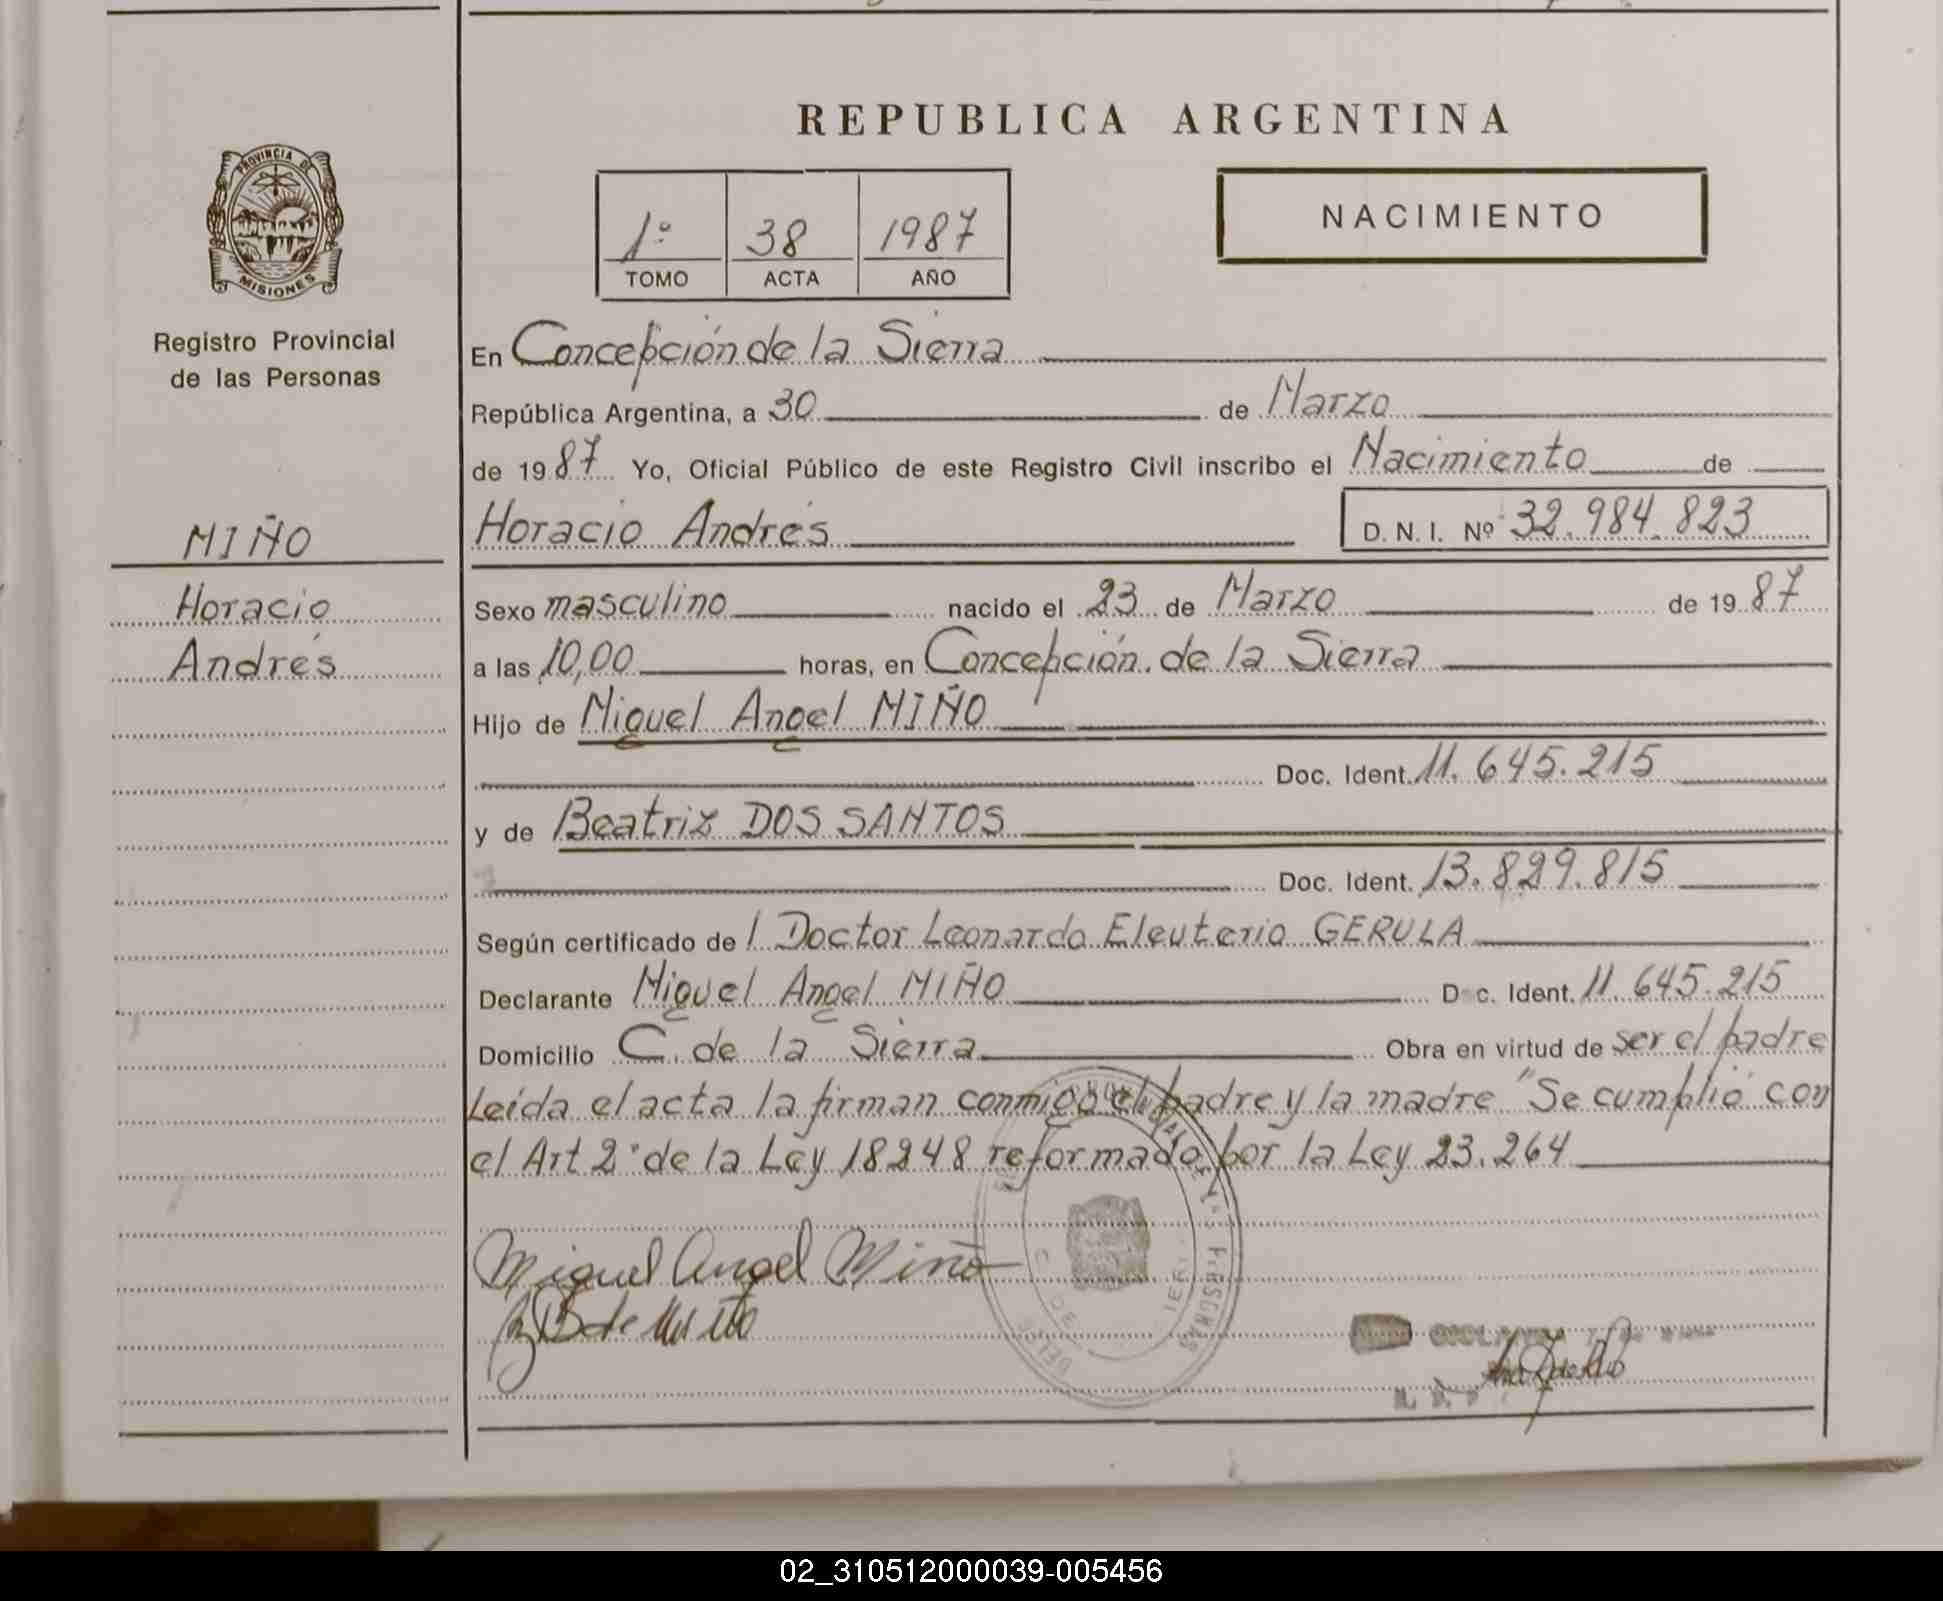 REPUBLICA ARGENTINA
PROVINCIA DE
MISIONES
Registro Provincial
de las Personas
1º 38 1987
TOMO ACTA AÑO
NACIMIENTO
En Concepción de la Sierra
República Argentina, a 30 de Marzo
de 1987 Yo, Oficial Público de este Registro Civil inscribo el Nacimiento de
MIÑO
Horacio
Andrés
Horacio Andrés D. N. I. Nº 32.984.823
Sexo masculino nacido el 23 de Marzo de 1987
a las 10,00 horas, en Concepción de la Sierra
Hijo de Miguel Angel MIÑO
Doc. Ident. 11.645.215
y de Beatriz DOS SANTOS
Doc. Ident. 13.829.815
Según certificado de l Doctor Leonardo Eleuterio GERULA
Declarante Miguel Angel MIÑO Doc. Ident. 11.645.215
Domicilio C. de la Sierra Obra en virtud de ser el padre
Leída el acta la firman conmigo el padre y la madre "Se cumplió con
el Art 2º de la Ley 18248 reformado por la Ley 23.264
Miguel Angel Miño
02_310512000039-005456